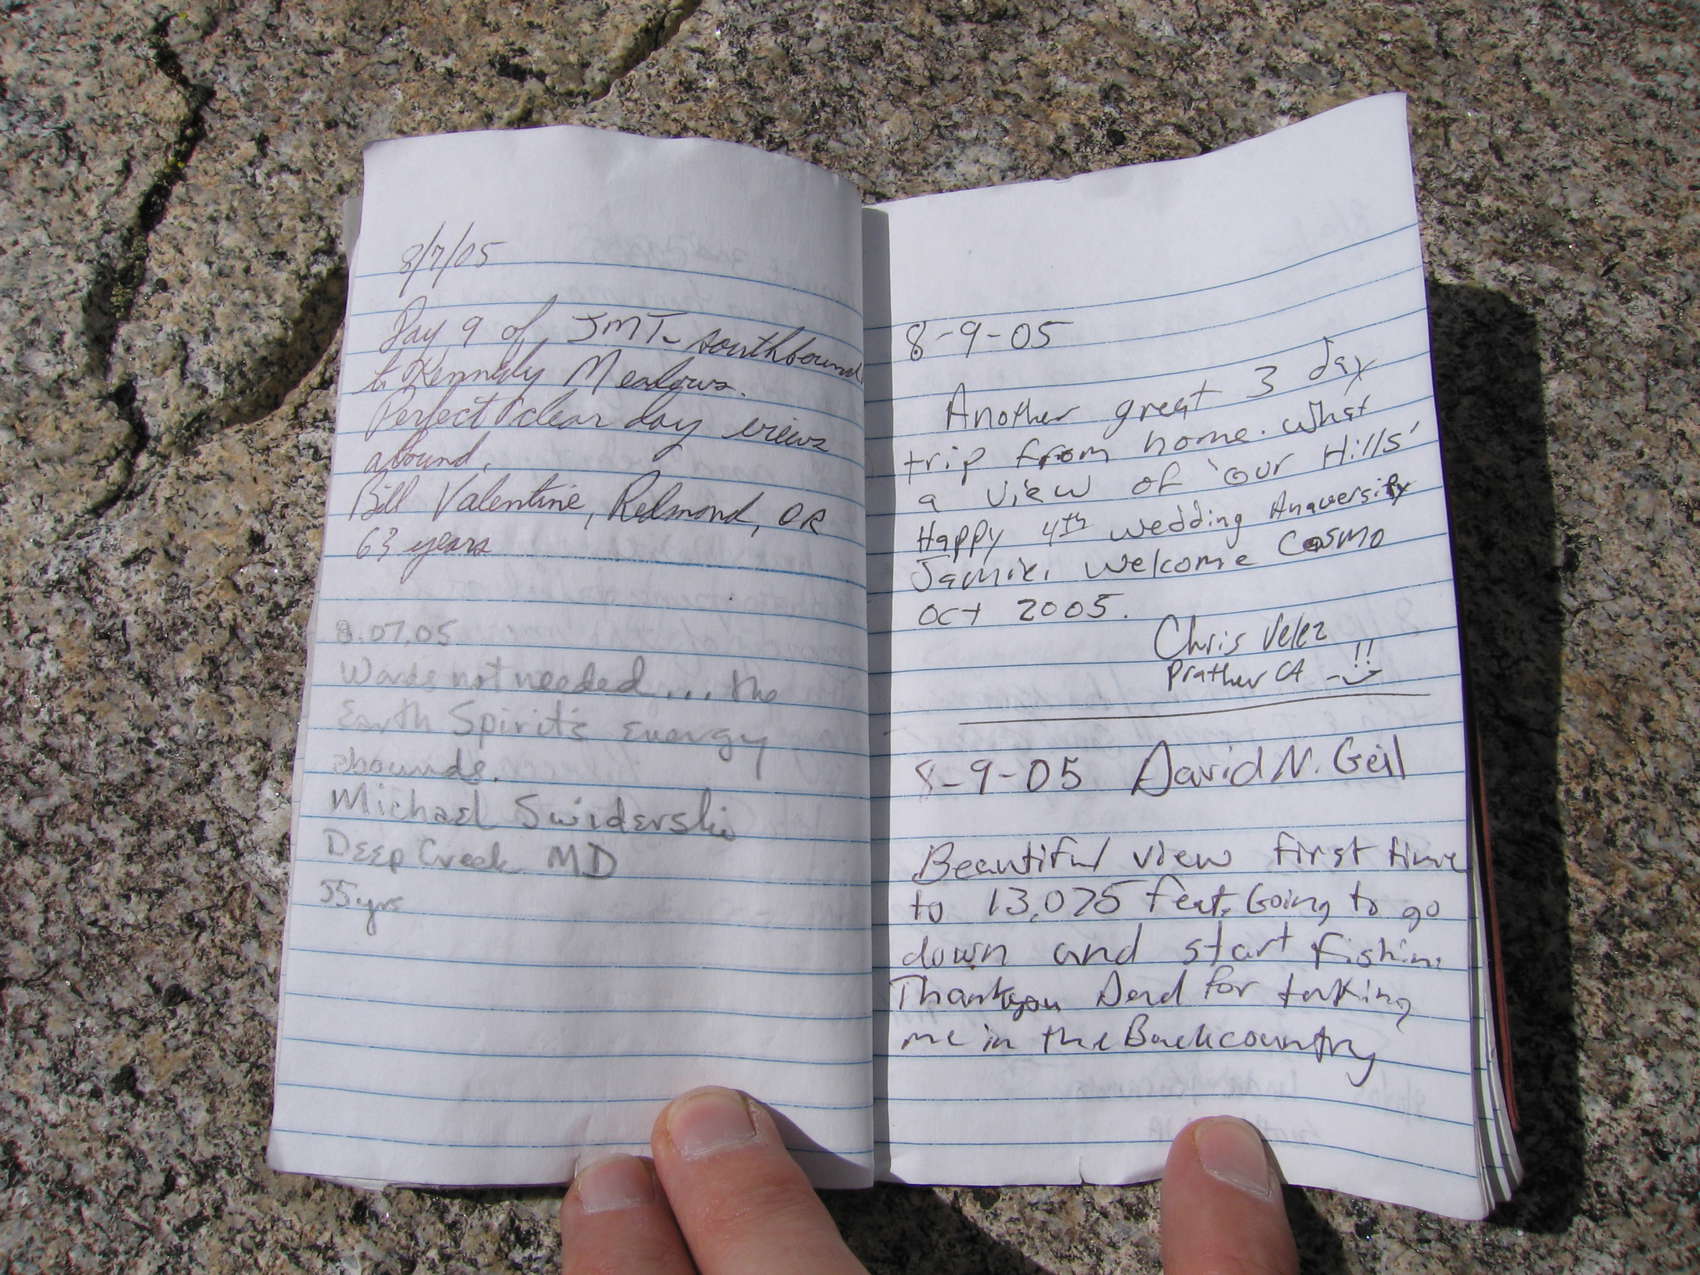 8/7/05
Day 9 of JMT - southbound
to Kennedy Meadows.
Perfect clear day views
abound.
Bill Valentine, Redmond, OR
63 years
8.07.05
Words not needed... the
Earth Spirit's Energy
abounds.
Michael Swiderski
Deep Creek MD
55 yrs
8-9-05
Another great 3 day
trip from home. what
a view of 'our Hills'
Happy 4th wedding Anaversity
Jamiki welcome Cosmo
Oct 2005.
Chris Velez
Prather CA !!
8-9-05 David N. Geil
Beautiful view first time
to 13,075 feet. Going to go
down and start fishing
Thankyou Dad for taking
me in the Backcountry